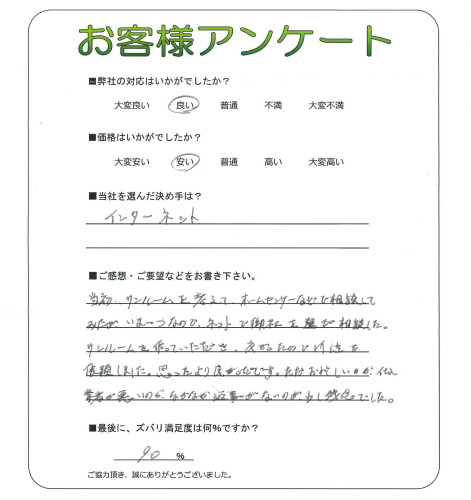 お客様アンケート
■弊社の対応はいかがでしたか？
大変良い 良い 普通 不満 大変不満
■価格はいかがでしたか？
大変安い 安い 普通 高い 大変高い
■当社を選んだ決め手は？
インターネット
■ご感想・ご要望などをお書き下さい。
当初、サンルームを考えて、ホームセンターなどで相談して
みたがいま一つなので、ネットで御社を選び相談した。
サンルームを作っていただき、良かったので
依頼しました。思ったより良かったです。ただおしいのが、
業者が悪いのか、なかなか返事がないのが少し残念でした。
■最後に、ズバリ満足度は何%ですか？
90 %
ご協力頂き、誠にありがとうございました。